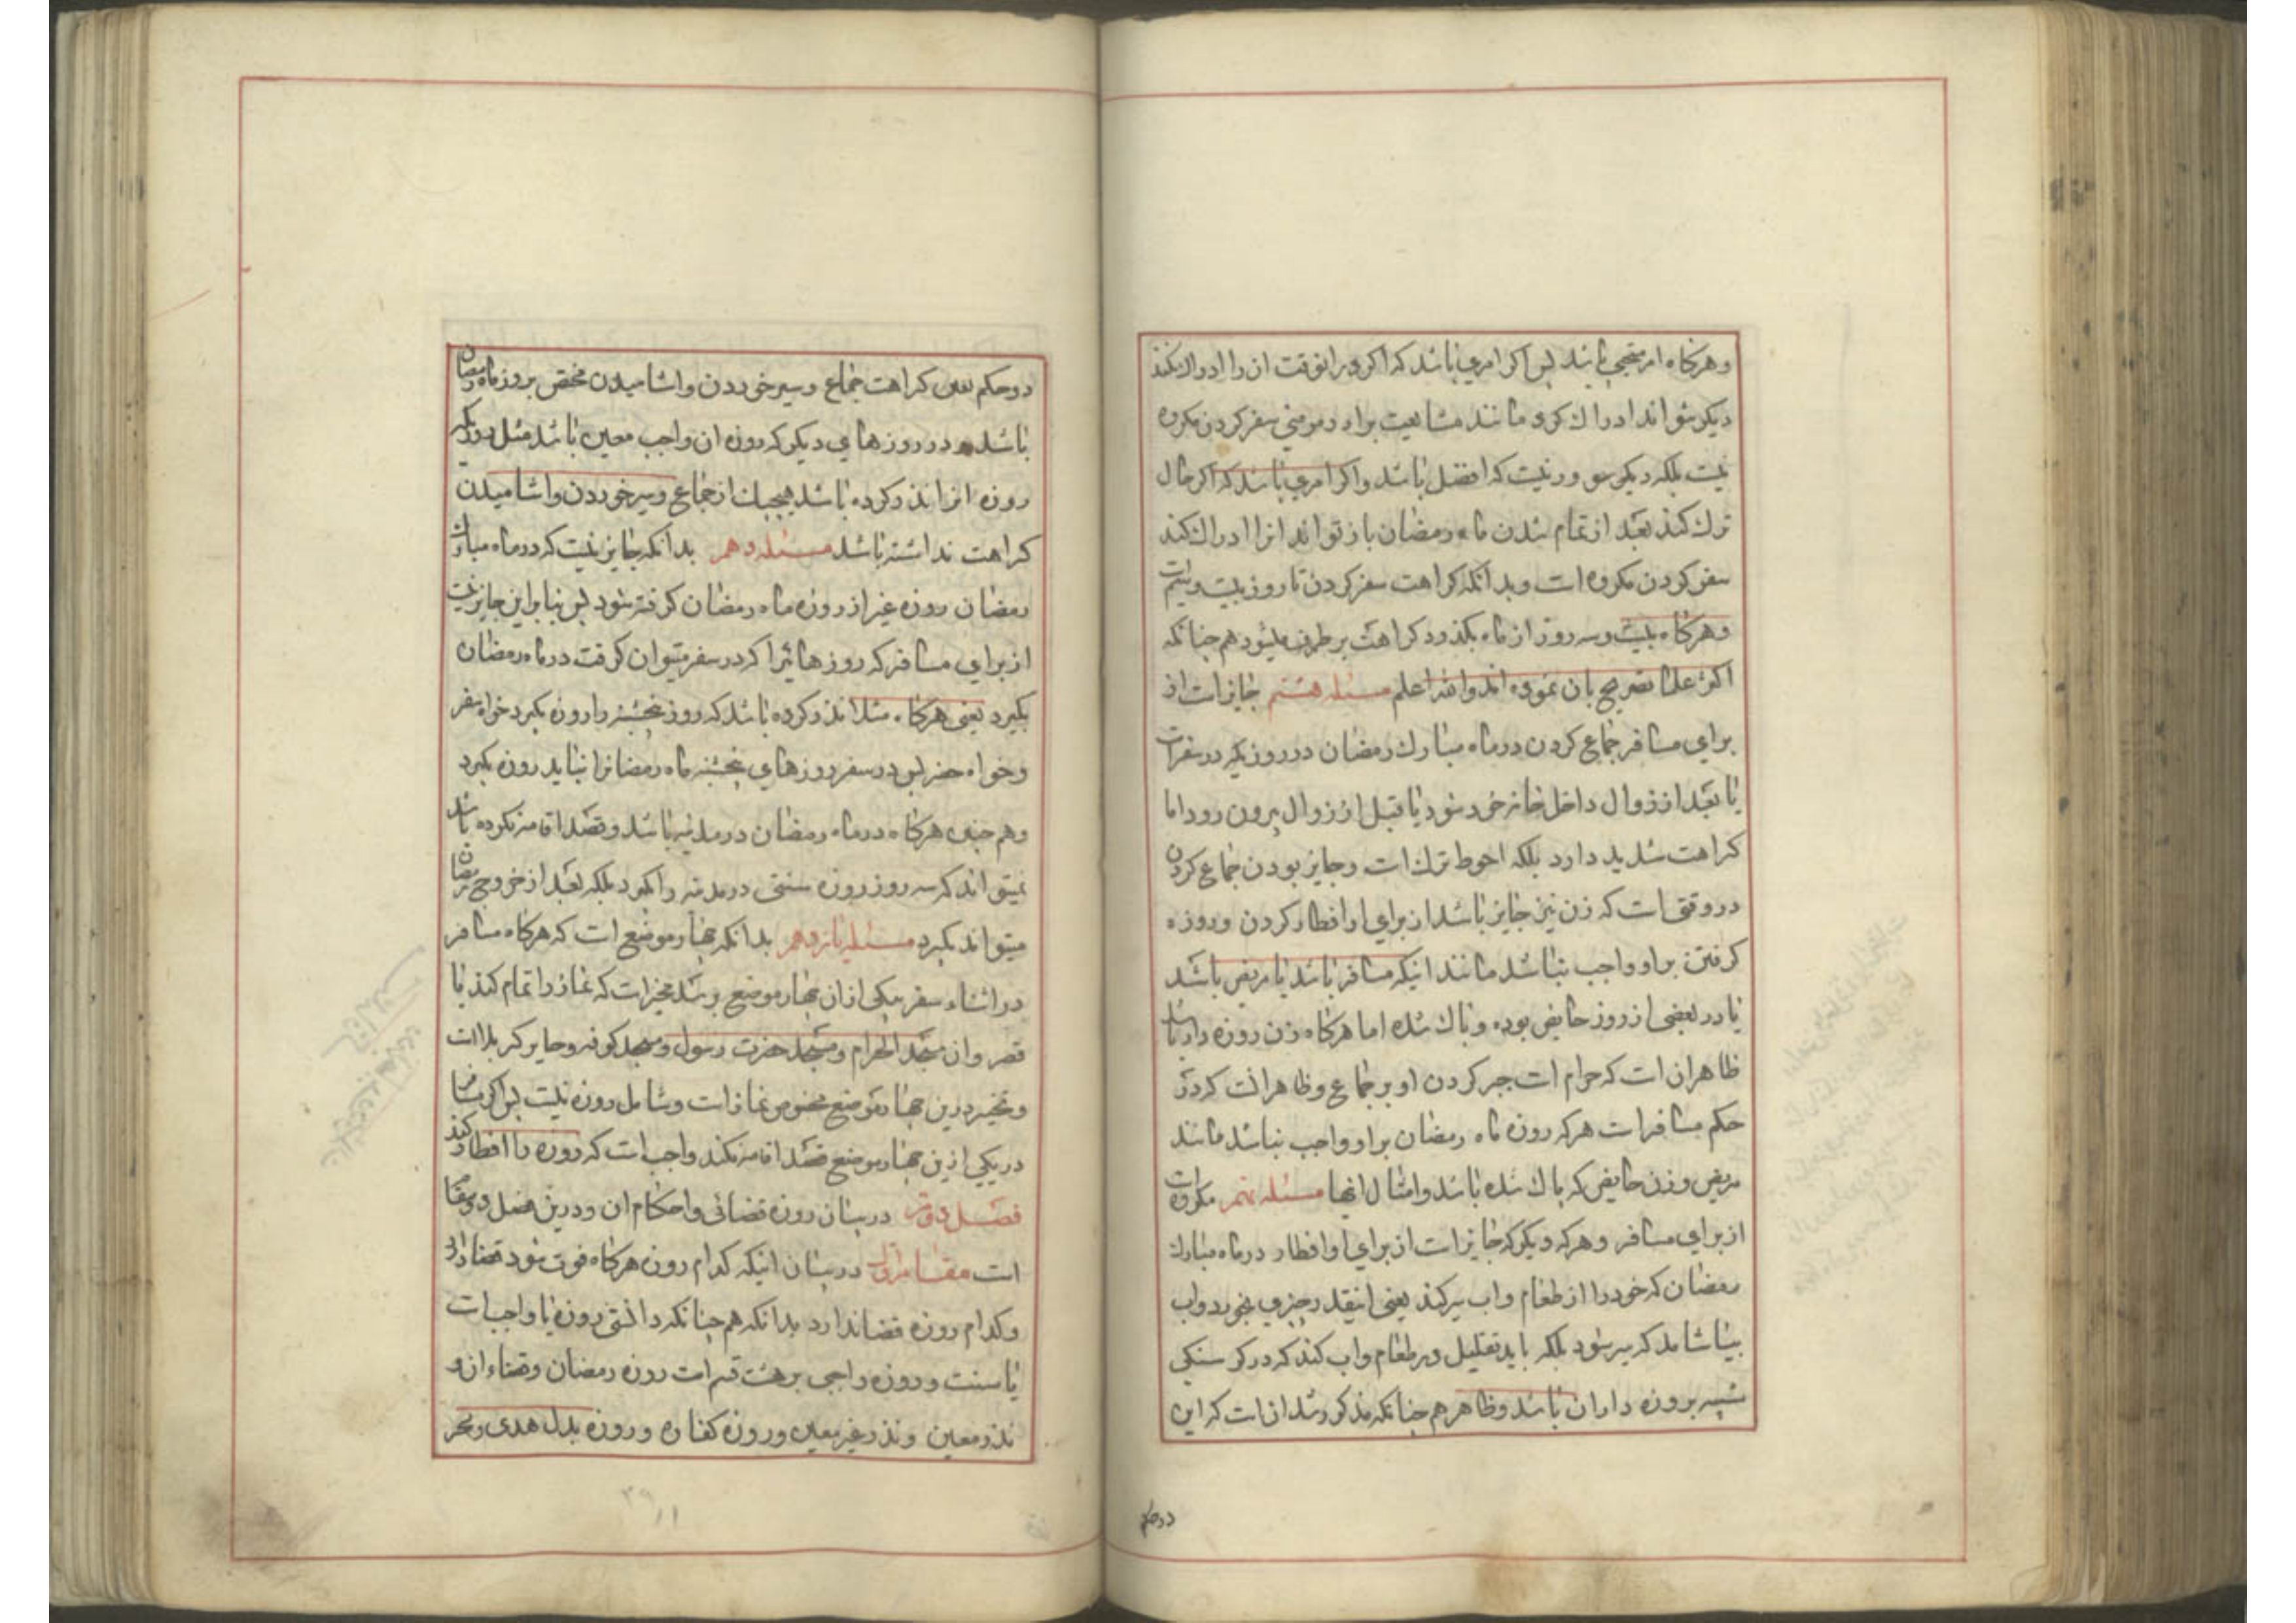 وهرکاه امر مستحبی باشد پس اکر امری باشد که اکر در انوقت ان را ادراک نکند
دیکر نتواند ادراک کرد مانند مشایعت برادر مومنی سفر کردن مکروه
نیست بلکه دیکر نیست که افضل باشد واکر امری باشد که اکر حال
ترک کند بعد از تمام شدن ماه رمضان باز تواند انرا ادراک کند
سفر کردن مکروه است وبدانکه کراهت سفر کردن تا روز بیست وسیم است
وهرکاه بیست وسه روز از ماه بکذرد کراهت برطرف میشود هم چنانکه
اکثر علما تصریح بان نموده اند والله اعلم مسئله هشتم جایز است از
برای مسافر جماع کردن در ماه مبارک رمضان در روزیکه در سفر است
یا بعد از زوال داخل خانه خود شود یا قبل از زوال بیرون رود اما
کراهت شدید دارد بلکه احوط ترک است وجایز بودن جماع کردن
در وقتی است که زن نیز جایز باشد از برای او افطار کردن وروزه
کرفتن بر او واجب نباشد مانند اینکه مسافر باشد یا مریض باشد
یا در بعضی از روز حایض بوده وپاک شده اما هرکاه زن روزه دار باشد
ظاهر ان است که حرام است جبر کردن او بر جماع وظاهر انست که در
حکم مسافر است هر که روزه ماه رمضان بر او واجب نباشد مانند
مریض وزن حایض که پاک شده باشد وامثال انها مسئله نهم مکروه است
از برای مسافر وهر که دیکر که جایز است از برای او افطار در ماه مبارک
رمضان که خود را از طعام واب سیر کند یعنی انیقدر چیزی بخورد واب
بیاشامد که سیر شود بلکه باید تقلیل در طعام واب کند که در کرسنکی
شبیه بروزه داران باشد وظاهر هم چنانکه مذکور شد ان است که این
در حکم
دو حکم یعنی کراهت جماع وسیر خوردن واشامیدن مختص بروز ماه رمضان
باشد ودر روزهای دیکر که روزه ان واجب معین باشد مثل روزیکه
روزه انرا نذر کرده باشد هیچیک از جماع وسیر خوردن واشامیدن
کراهت نداشته باشد مسئله دهم بدانکه جایز نیست که در ماه مبارک
رمضان روزه غیر از روزه ماه رمضان کرفته شود پس بنابراین جایز نیست
از برای مسافر که روزهائیرا که در سفر میتوان کرفت در ماه رمضان
بکیرد یعنی هرکاه مثلا نذر کرده باشد که روز پنجشنبه را روزه بکیرد خواه سفر
وخواه حضر پس در سفر روزهای پنجشنبه ماه رمضانرا نباید روزه بکیرد
وهم چنین هرکاه در ماه رمضان در مدینه باشد وقصد اقامه نکرده باشد
نمیتواند که سه روز روزه سنتی در مدینه را بکیرد بلکه بعد از خروج رمضان
میتواند بکیرد مسئله یازدهم بدانکه چهار موضع است که هرکاه مسافر
در اثناء سفر بیکی از ان چهار موضع برسد مخیر است که نماز را تمام کند یا
قصر وان مسجد الحرام ومسجد حضرت رسول ومسجد کوفه وحایر کربلا است
وتخییر درین چهار موضع مخصوص نماز است وشامل روزه نیست پس اکر مسافر
در یکی از این چهار موضع قصد اقامه نکند واجب است که روزه را افطار کند
فصل دوم در بیان روزه قضائی واحکام ان ودرین فصل دو مقام
است مقام اول در بیان اینکه کدام روزه هرکاه فوت شود قضا دارد
وکدام روزه قضا ندارد بدانکه هم چنانکه دانستی روزه یا واجب است
یا سنت وروزه واجبی بر هشت قسم است روزه رمضان وقضاء ان و
نذر معین ونذر غیر معین وروزه کفاره وروزه بدل هدی ونحر